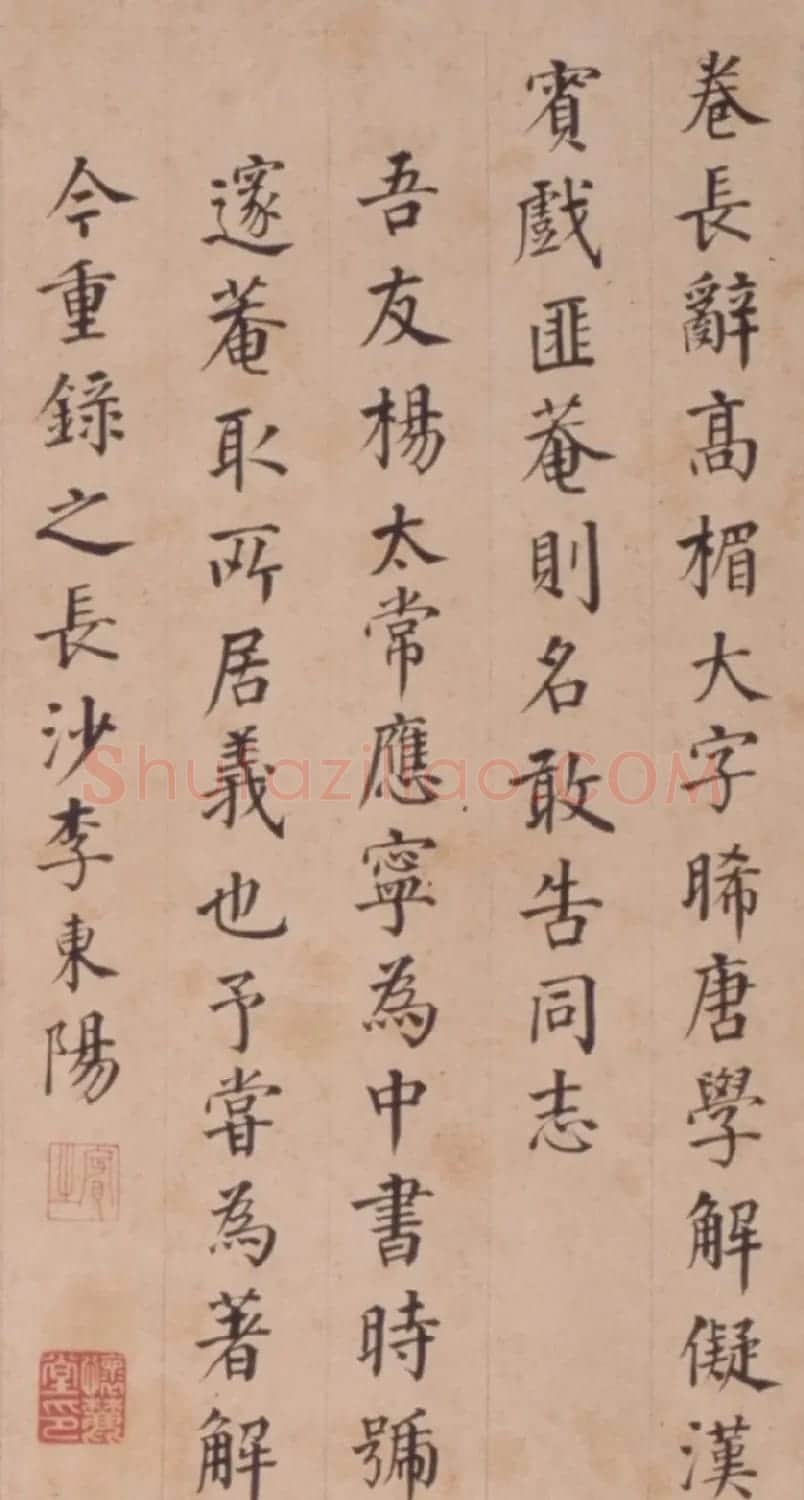 卷長辭高楣大字晞唐學解儗漢
賓戲匪菴則名敢告同志
吾友楊太常應寧為中書時號
邃菴取所居義也予嘗為著解
今重錄之長沙李東陽
賓之
懷麓堂印
Shufaziliao.COM